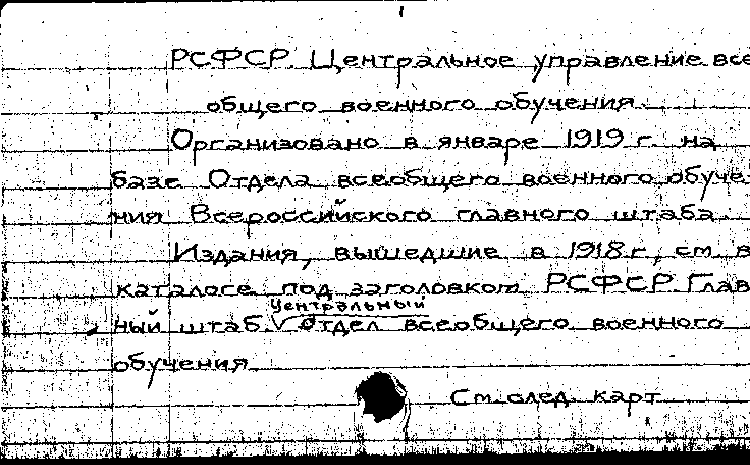 РСФСР. Центральное управление все
общего военного обучения.
Организовано в январе 1919 г. на
базе Отдела всеобщего военного обуче-
ния Всероссийского главного штаба.
Издания, вышедшие в 1918 г., см. в
каталоге под заголовком РСФСР. Глав
Центральный
ный штаб. V Отдел всеобщего военного
обучения.
См. след. карт.